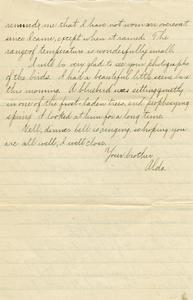 reminds me that I have not worn an overcoat
since I came, except when it rained. The
range of temperature is wonderfully small.
I will be very glad to see your photographs
of the birds. I had a beautiful little scene here
this morning. A bluebird was sitting quietly
in one of the frost-laden trees, and prophesying
spring. I looked at him for a long time.
Well, dinner bell is ringing, so hoping you
are all well, I will close.
Your brother,
Aldo.